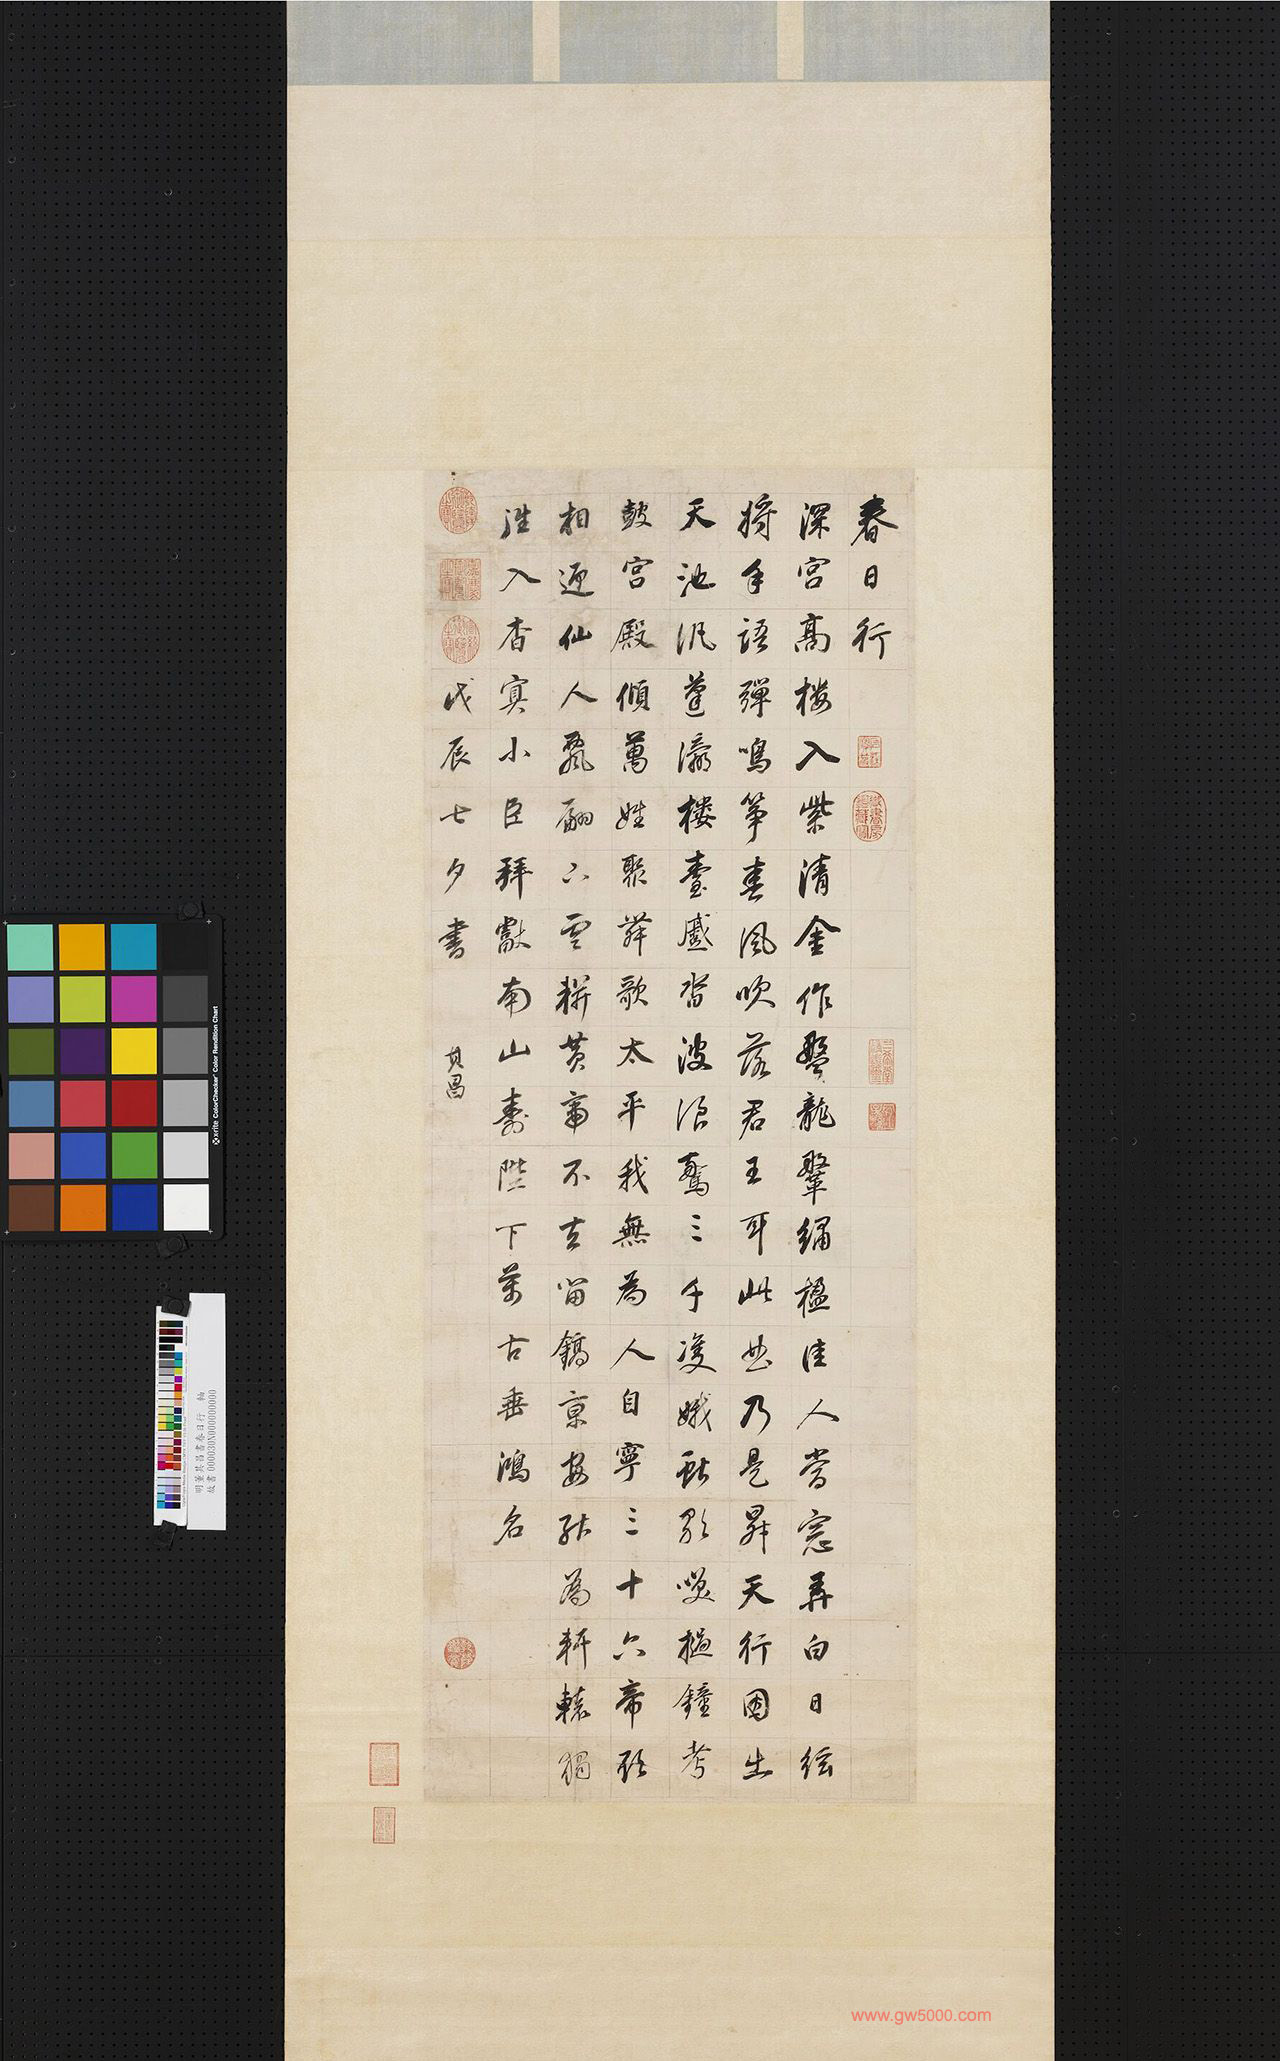 春日行
深宮高楼入紫清金作盤龍鞏繡楹佳人當窓弄白日絃
將手語彈鳴箏春風吹落君王耳此曲乃是昇天行因出
天池汎蓬瀛楼臺蹙沓波浪驚三千雙娥獻歌笑撾鐘考
鼓宮殿傾萬姓聚舞歌太平我無為人自寧三十六帝欲
相迎仙人飄翩下雲輧黃帝不去留鎬京安能為軒轅獨
往入杳冥小臣拜獻南山壽陛下萬古垂鴻名
戊辰七夕書
其昌
x-rite ColorChecker Color Rendition Chart
明董其昌書春日行 軸
www.gw5000.com